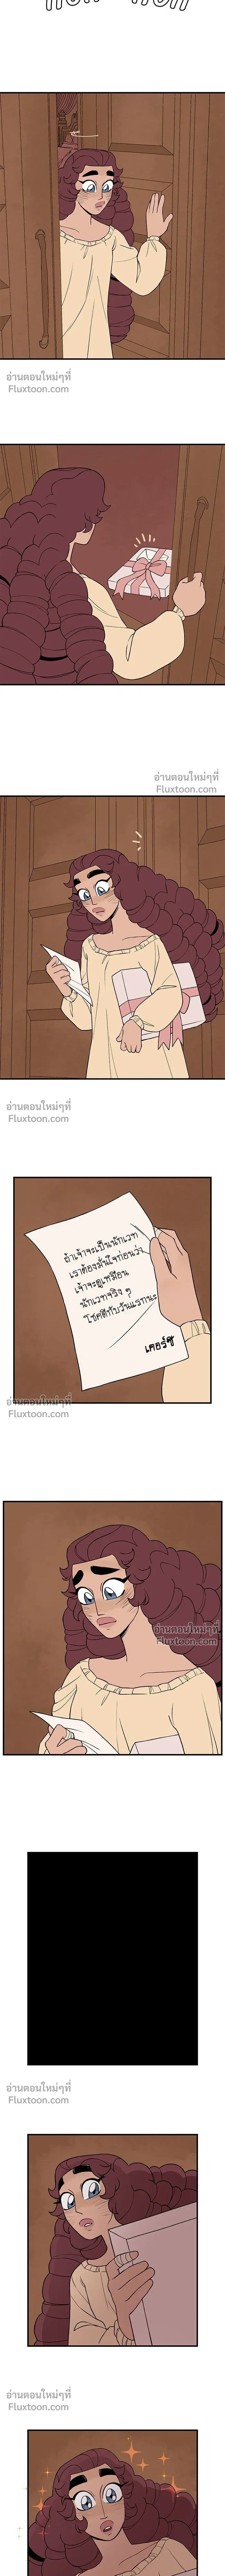 อ่านตอนใหม่ๆที่
Fluxtoon.com
อ่านตอนใหม่ๆที่
Fluxtoon.com
อ่านตอนใหม่ๆที่
Fluxtoon.com
ถ้าเจ้าจะเป็นนักเวท
เราต้องมั่นใจก่อนว่า
เจ้าจะดูเหมือน
นักเวทจริง ๆ
โชคดีกับวันแรกนะ
เคอร์ซี
อ่านตอนใหม่ๆที่
Fluxtoon.com
อ่านตอนใหม่ๆที่
Fluxtoon.com
อ่านตอนใหม่ๆที่
Fluxtoon.com
อ่านตอนใหม่ๆที่
Fluxtoon.com